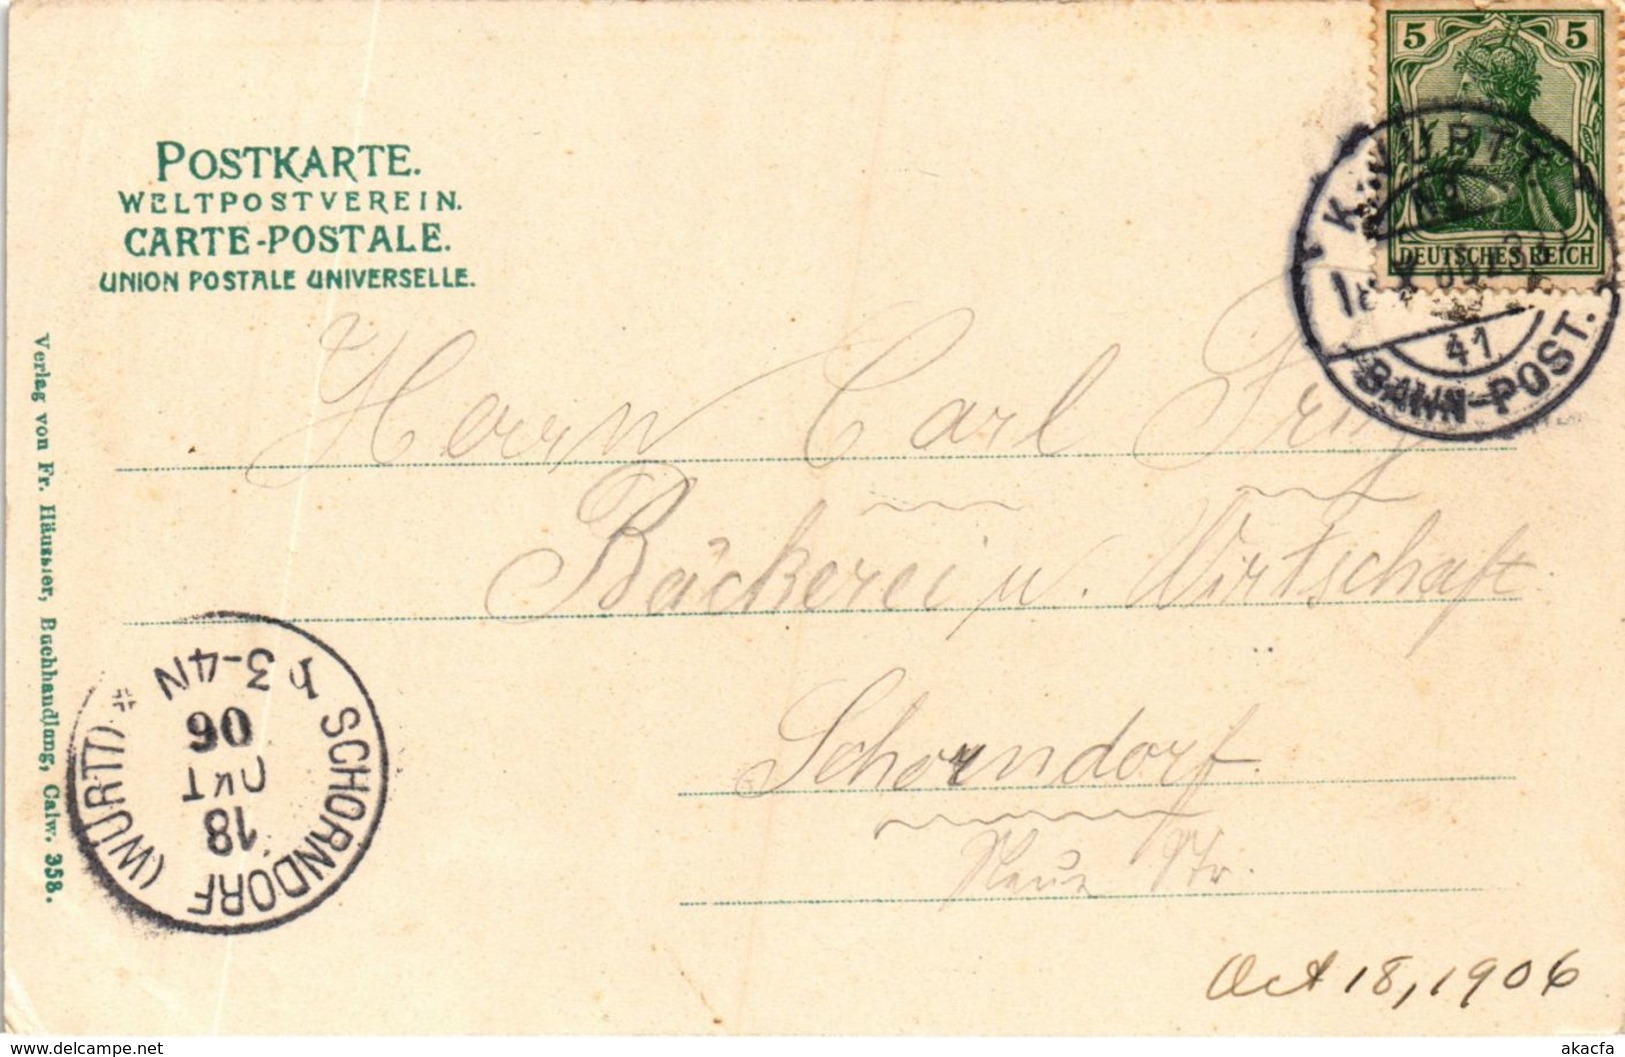 POSTKARTE.
WELTPOSTVEREIN.
CARTE-POSTALE.
UNION POSTALE UNIVERSELLE.
5 5
DEUTSCHES REICH
K. WÜRTT.
No
41
BAHN-POST.
Herrn Carl
Bäckerei u. Wirtschaft.
Schorndorf.
Neue Str.
Verlag von Fr. Häussler, Buchhandlung, Calw. 358.
SCHORNDORF (WÜRTT)
18
OKT
06
3-4N
Oct 18, 1906
delcampe.net
akacfa